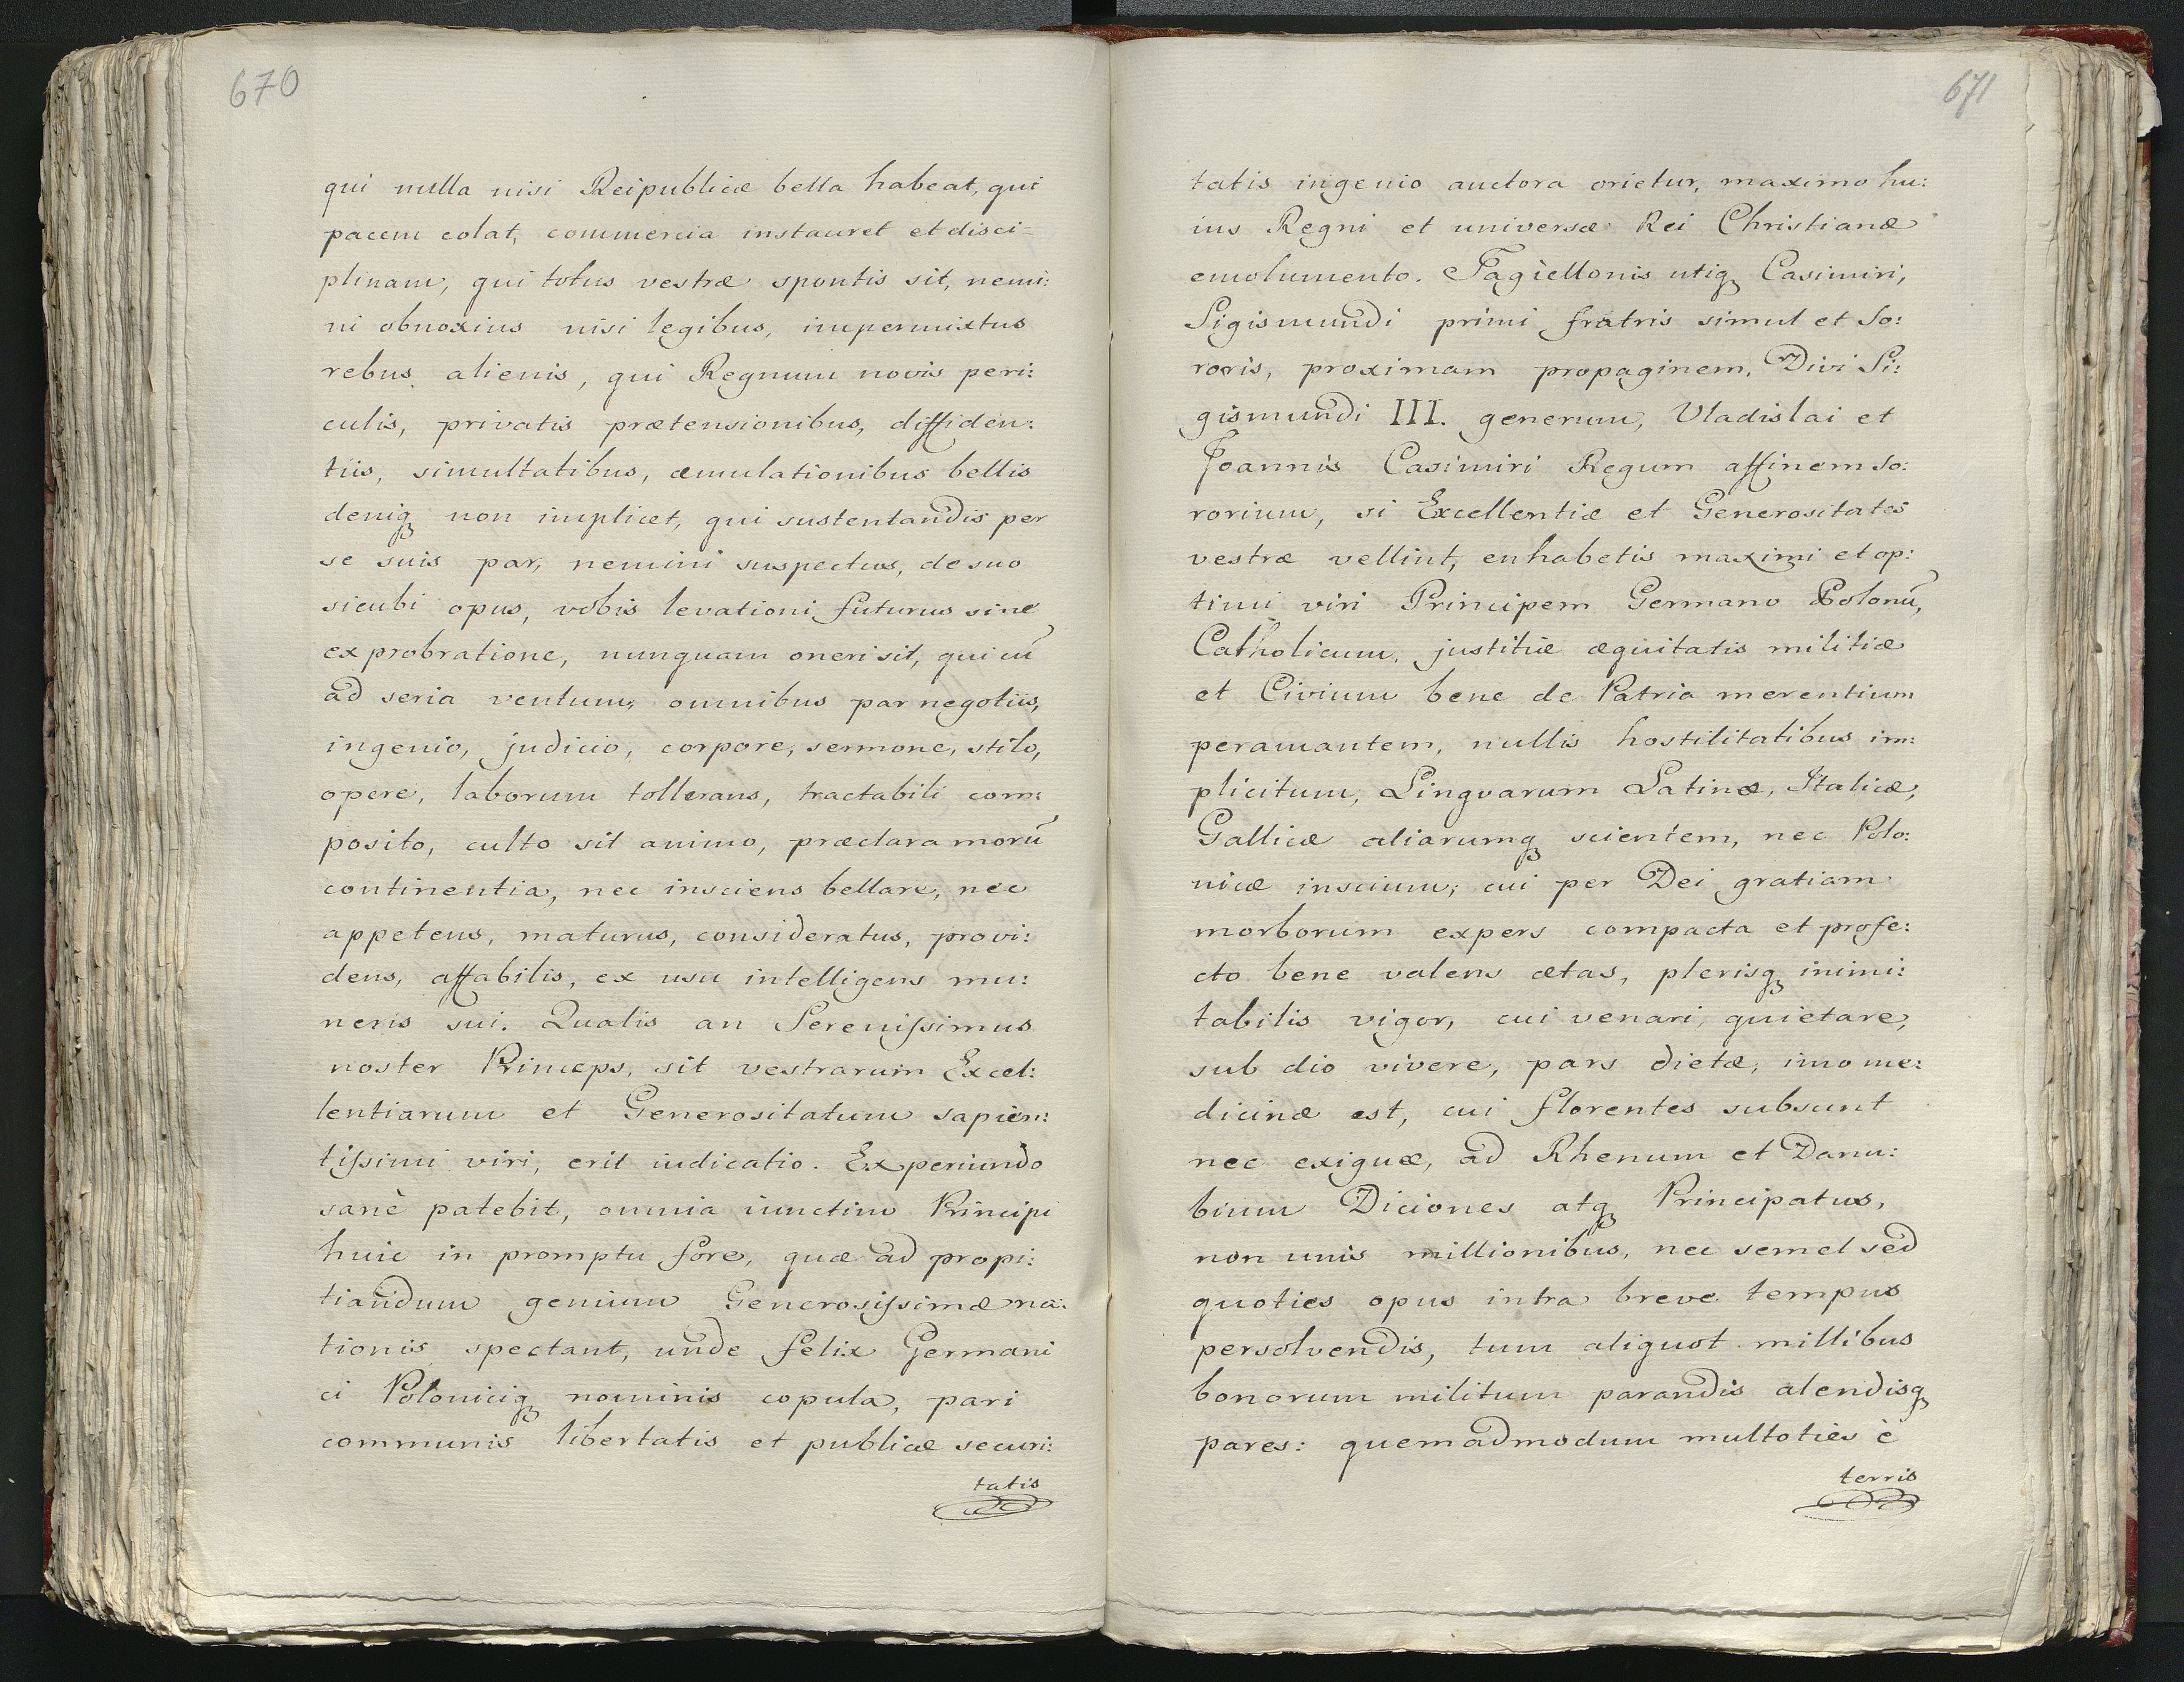 670
qui nulla nisi Reipublicæ bella habeat, qui
pacem colat, commercia instauret et disci=
plinam, qui totus vestræ spontis sit, nemi:
ni obnoxius nisi legibus, impermixtus
rebus alienis, qui Regnum novis peri:
culis, privatis prætensionibus, diffiden:
tiis, simultatibus, æmulationibus bellis
deniqꝫ non implicet, qui sustentandis per
se suis par, nemini suspectus, de suo
sicubi opus, vobis levationi futurus sine
exprobratione, nunquam oneri sit, qui cū
ad seria ventum, omnibus par negotiis,
ingenio, judicio, corpore, sermone, stilo,
opere, laborum tollerans, tractabili com:
posito, culto sit animo, præclara morū
continentia, nec insciens bellare, nec
appetens, maturus, consideratus, provi:
dens, affabilis, ex usu intelligens mu:
neris sui. Qualis an Serenissimus
noster Princeps, sit vestrarum Excel:
lentiarum et Generositatum sapien:
tissimi viri, erit iudicatio. Experiundo
sanè patebit, omnia iunctim Principi
huic in promptu fore, quæ ad propi:
tiandum genium Generosissimæ na:
tionis spectant, unde felix Germani
ci Poloniciqꝫ nominis copula, pari
communis libertatis et publicæ securi:
tatis
671
tatis ingenio auctora orietur, maximo hu:
ius Regni et universæ Rei Christianæ
emolumento. Jagiellonis utiqꝫ Casimiri,
Sigismundi primi fratris simul et So:
roris, proximam propaginem, Divi Si:
gismundi III. generum, Vladislai et
Joannis Casimiri Regum affinem so:
rorium, si Excellentiæ et Generositates
vestræ vellint, en habetis maximi et op:
timi viri Principem Germano Polonū,
Catholicum, justitiæ æquitatis militiæ
et Civium bene de Patria merentium
peramantem, nullis hostilitatibus im:
plicitum, Lingvarum Latinæ, Italicæ,
Gallicæ aliarumqꝫ scientem, nec Polo:
nicæ inscium, cui per Dei gratiam
morborum expers compacta et profe:
cto bene valens ætas, plerisqꝫ inimi:
tabilis vigor, cui venari, quietare,
sub dio vivere, pars dietæ, imo me:
dicinæ est, cui florentes subsunt
nec exiguæ, ad Rhenum et Danu:
bium Diciones atqꝫ Principatus,
non unis millionibus, nec semel sed
quoties opus intra breve tempus
persolvendis, tum aliquot millibus
bonorum militum parandis alendisqꝫ
pares: quemadmodum multoties è
terris